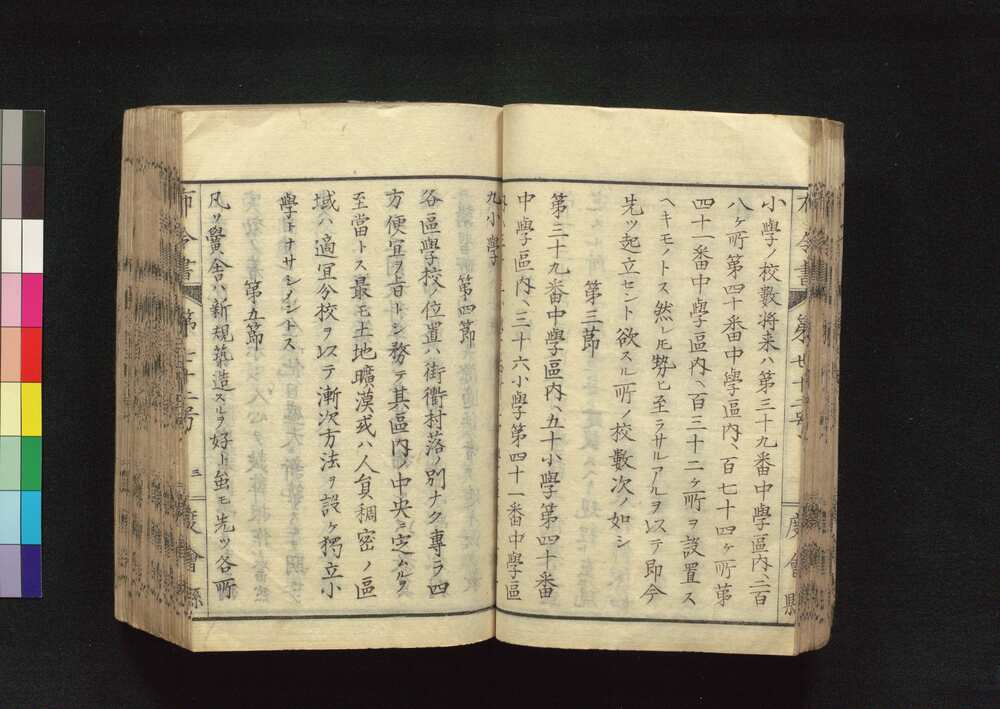 布令書 第廿十二号 度會縣
小學ノ校數將来ハ第三十九番中學區内ニ二百
八ヶ所第四十番中學區内ニ百七十四ヶ所第
四十一番中學區内ニ百三十二ヶ所ヲ設置ス
ヘキモノトス然レ𪜈勢ヒ至ラサルアルヲ以テ即今
先ツ起立セント欲スル所ノ校數次ノ如シ
第三節
第三十九番中學區内ニ五十小學第四十番
中學區内ニ三十六小學第四十一番中學區
九小學
第四節
各區學校ノ位置ハ街衢村落ノ別ナク專ラ四
方便宜ヲ旨トシ務テ其區内ノ中央ニ定ムルヲ
至當トス最モ土地曠漠或ハ人員稠密ノ區
域ハ適宜分校ヲ以テ漸次方法ヲ設ケ獨立小
學トナサシメントス
第五節
凡ソ黌舎ハ新規築造スルヲ好トス𪜈先ツ各所
布令書 第七十二号 三 度會縣